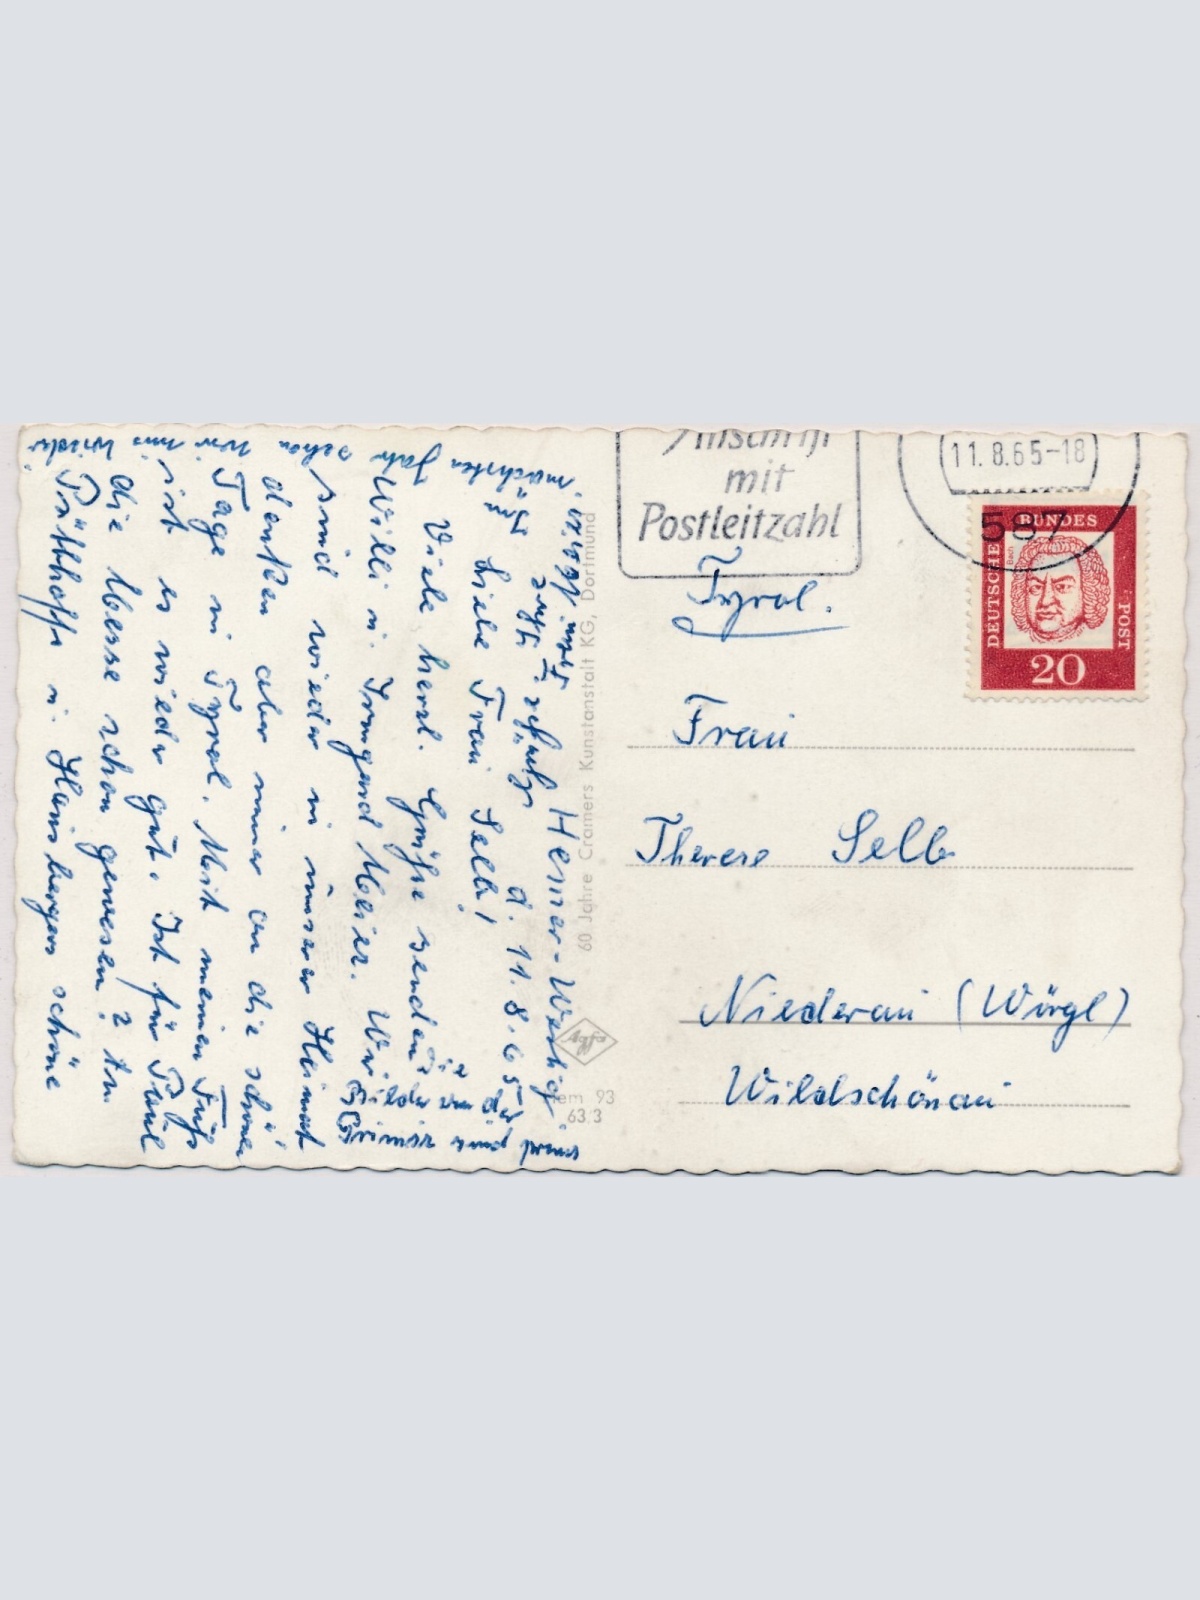 Hemer-Westig
d. 11. 8. 65
Liebe Frau Selb!
Viele herzl. Grüße senden
Willi u. Irmgard Meier. Wir
sind wieder in unserer Heimat
denken aber immer an die schönen
Tage in Tyrol. Mit meinem Fuß
ist es wieder gut. Ist für Paul
die Messe schon gewesen? An
u. Hausbergers schöne
Grüße u.
Frau Maier.
Die
Bilder von der
sind
nächsten Jahr
schon
wir uns wieder
Anschrift
mit
Postleitzahl
11.8.65-18
587
DEUTSCHE
BUNDES
POST
Bach
20
Tyrol.
Frau
Therese Selb
Niederau (Wörgl)
Wildschönau
60 Jahre Cramers Kunstanstalt KG, Dortmund
Agfa
Hem 93
63 3